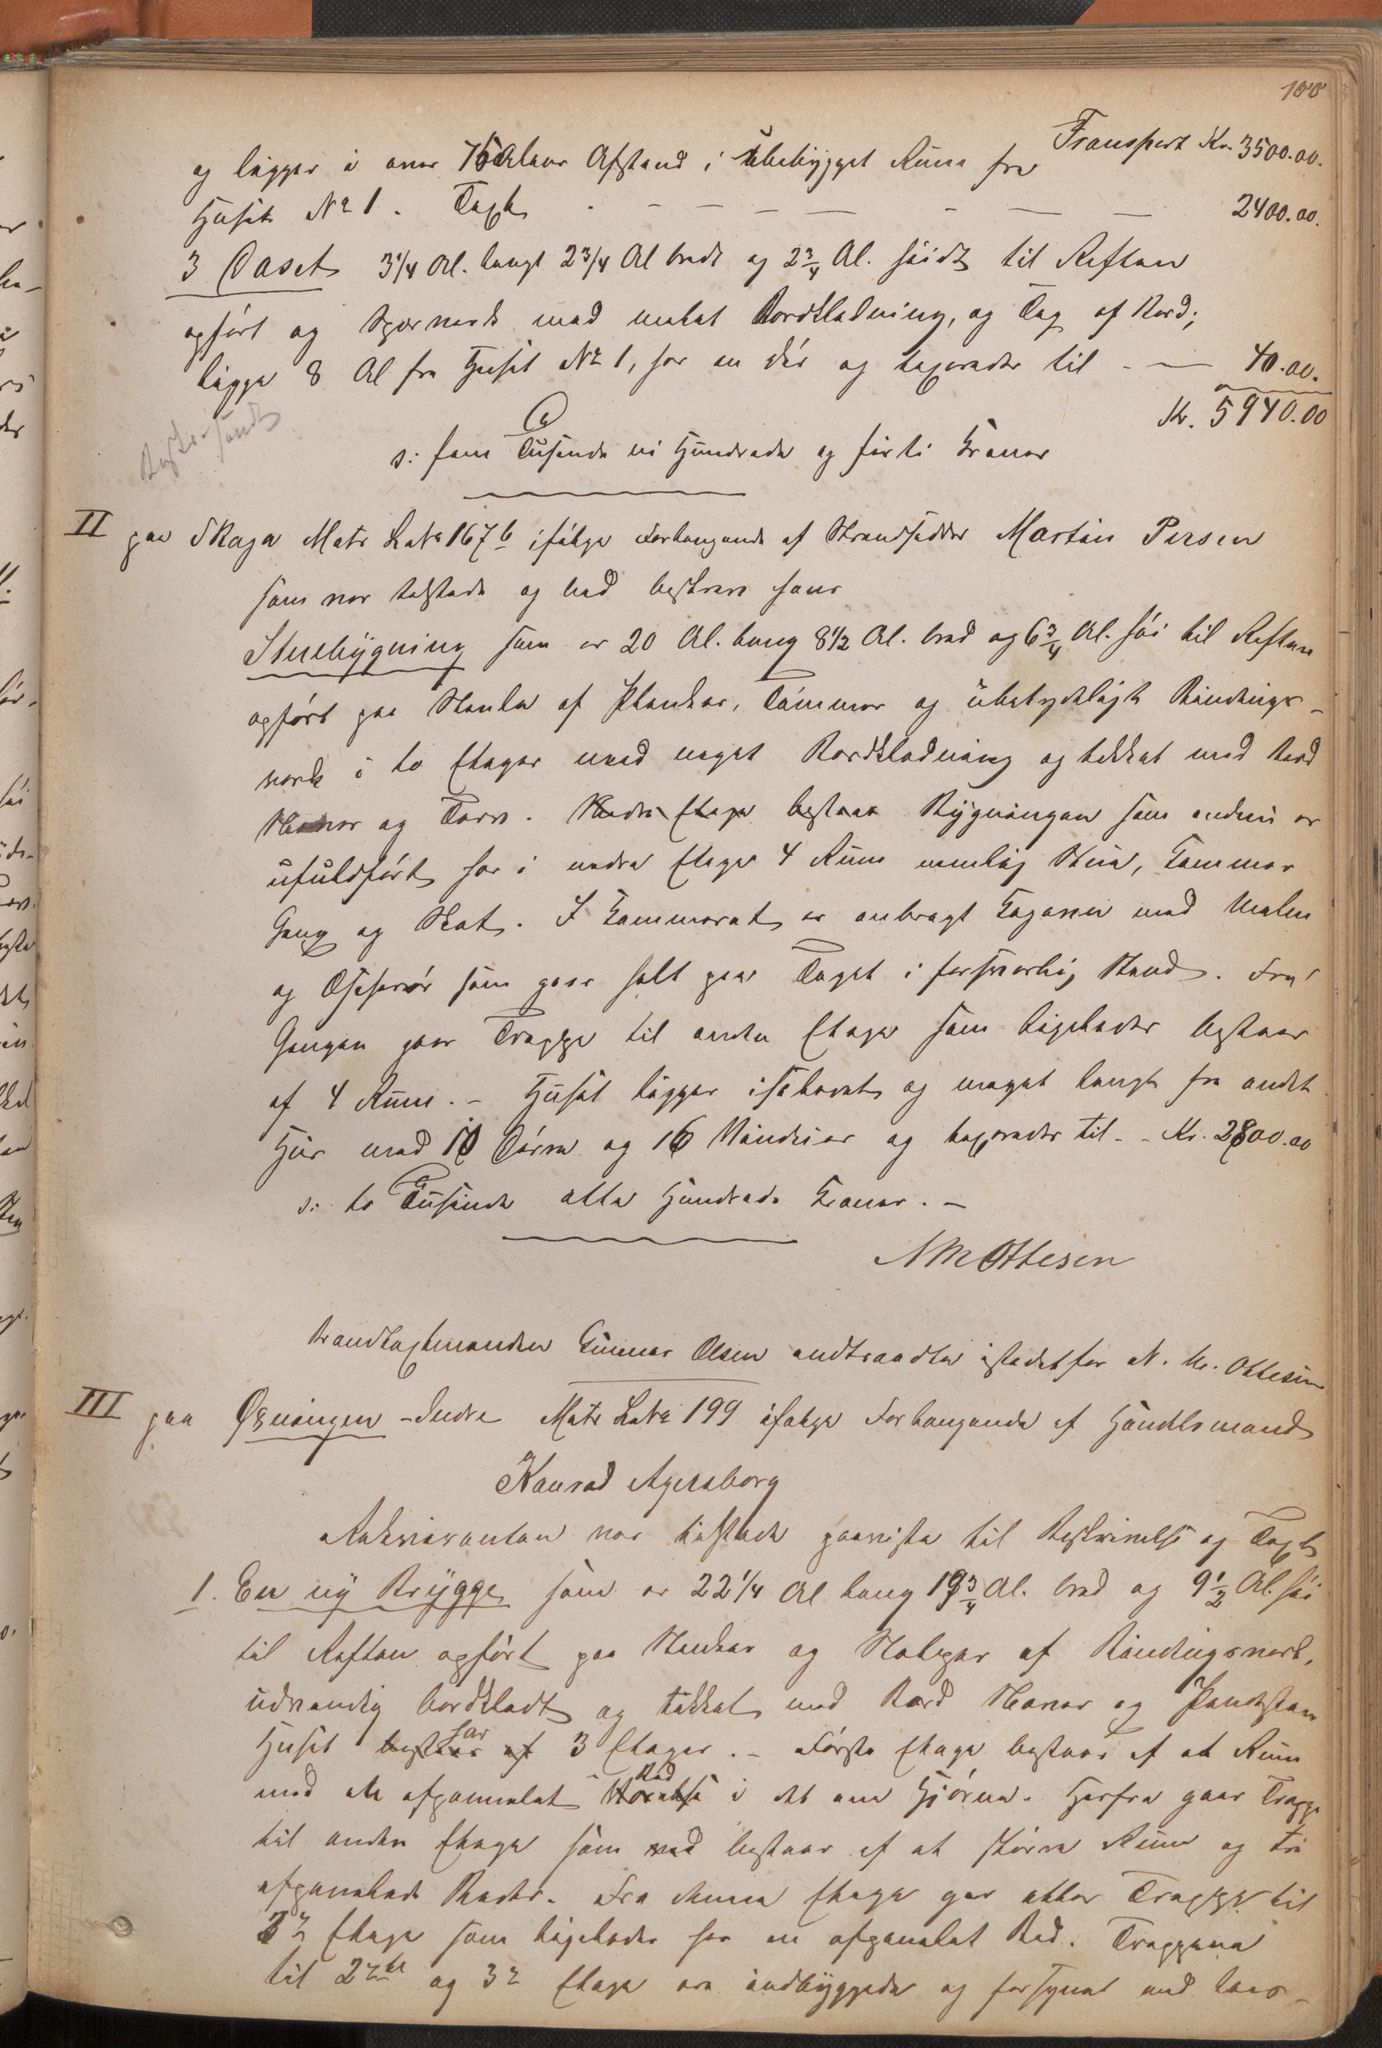 100
Transport Kr. 3500.00.
og ligger i over 75 Alens Afstand i ubebygget Rum fra
Huset No 1. Taxt . - - - - - - 2400.00.
3 Vaset 3 1/4 Al. langt 2 3/4 Al bredt og 2 3/4 Al. höidt til Raften
opført og Sperreverk med enkelt Bordklædning, og Tag af Bord;
ligger 8 Al fra Huset No 1, har en Dör og taxeredes til - — 40.00.
Kr. 5940.00
s: fem Tusinde ni Hundrede og förti Kroner
II paa Skaga Matr Løbe 167b ifölge Forlangende af Strandsidder Martin Persen
som var tilstede og lod beskrive hans
Stuebygning som er 20 Al. lang 8 1/2 Al. bred og 6 3/4 Al. höi til Raften
opfört paa Stenler af Planker, Tömmer og ubetydeligt Bindings-
verk i to Etager med noget Bordklædning og tekket med Bord
Næver og Torv. Nedre Etage bestaar Bygningen som endnu er
ufuldført har i nedre Etage 4 Rum nemlig Stue, Kammer
Gang og Skot. I Kammeret er anbragt Kogeovn med Malm
og Ofsherör som gaar helt paa Taget i forsvarlig Stand. Fra
Gangen gaar Trappe til anden Etage som ligeledes bestaar
af 4 Rum. - Huset ligger isoleret og meget langt fra andet
Hus med 10 Dörre og 16 Vinduer og taxeredes til - - Kr. 2800.00
s: to Tusinde otte Hundrede Kroner. -
N M Ottesen
Brandtaxtmanden Gunnar Olsen indtraadte istedetfor N. M. Ottesen
III paa Øxningen - Indre Matr Løbe 199 ifölge Forlangende af Handelsmand
Konrad Agersborg
Rekvirenten var tilstede paaviste til Beskrivelse og Taxt
1. En ny Brygge som er 22 1/4 Al lang 19 3/4 Al. bred og 9 1/2 Al. höi
til Raften opført paa Stenkar og Stolper af Bindingsverk,
udvendig bordklædt og tekket med Bord Næver og Pandsten
Huset bestaar af har 3 Etager. - Förste Etage bestaar af et Rum
med en afpanelet Bod i det ene Hjörne. Herfra gaar Trappe
til anden Etage som ved bestaar af et större Rum og tre
afpanelede Boder. Fra denne Etage gaar atter Trappe til
3die Etage som ligeledes har en afpanelet Bod. Trapperne
til 2den og 3die Etage ere indbyggede og forsynet med laas-